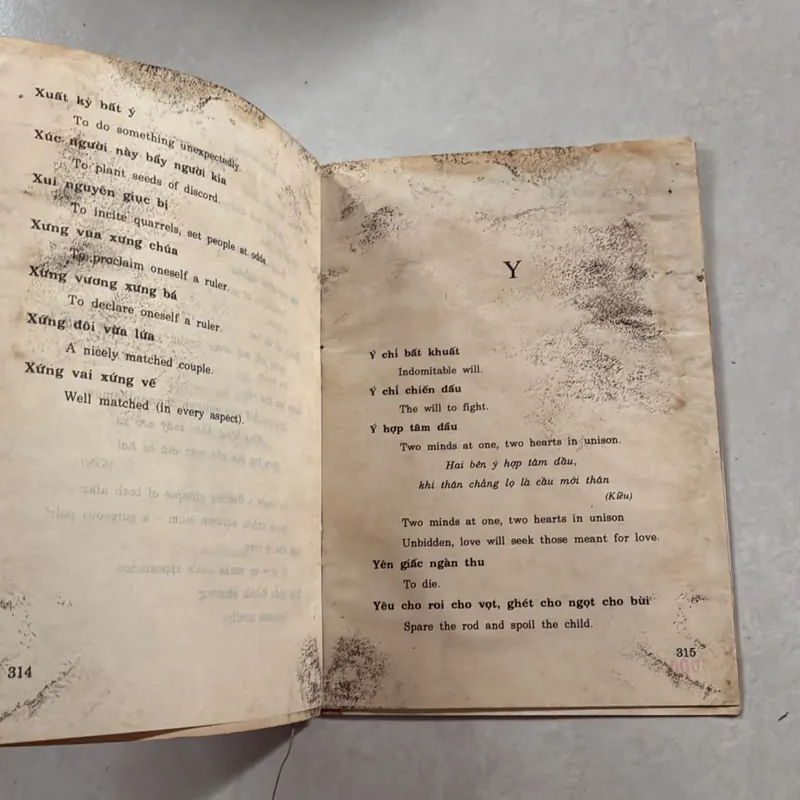 Xuất kỳ bất ý
To do something unexpectedly.
Xúc người này bẩy người kia
To plant seeds of discord.
Xui nguyên giục bị
To incite quarrels, set people at odds.
Xưng vua xưng chúa
To proclaim oneself a ruler.
Xưng vương xưng bá
To declare oneself a ruler.
Xứng đôi vừa lứa
A nicely matched couple.
Xứng vai xứng vế
Well matched (in every aspect).
314
Y
Ý chí bất khuất
Indomitable will.
Ý chí chiến đấu
The will to fight.
Ý hợp tâm đầu
Two minds at one, two hearts in unison.
Hai bên ý hợp tâm đầu,
khi thân chẳng lọ là cầu mới thân
(Kiều)
Two minds at one, two hearts in unison
Unbidden, love will seek those meant for love.
Yên giấc ngàn thu
To die.
Yêu cho roi cho vọt, ghét cho ngọt cho bùi
Spare the rod and spoil the child.
315